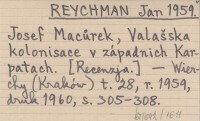 REYCHMAN Jan 1959.
Josef Macůrek, Valašska
kolonisace v západnich Kar-
patach. [Recenzja.] — Wier-
chy (Kraków) t. 28, r. 1959,
druk 1960, s. 305-308.